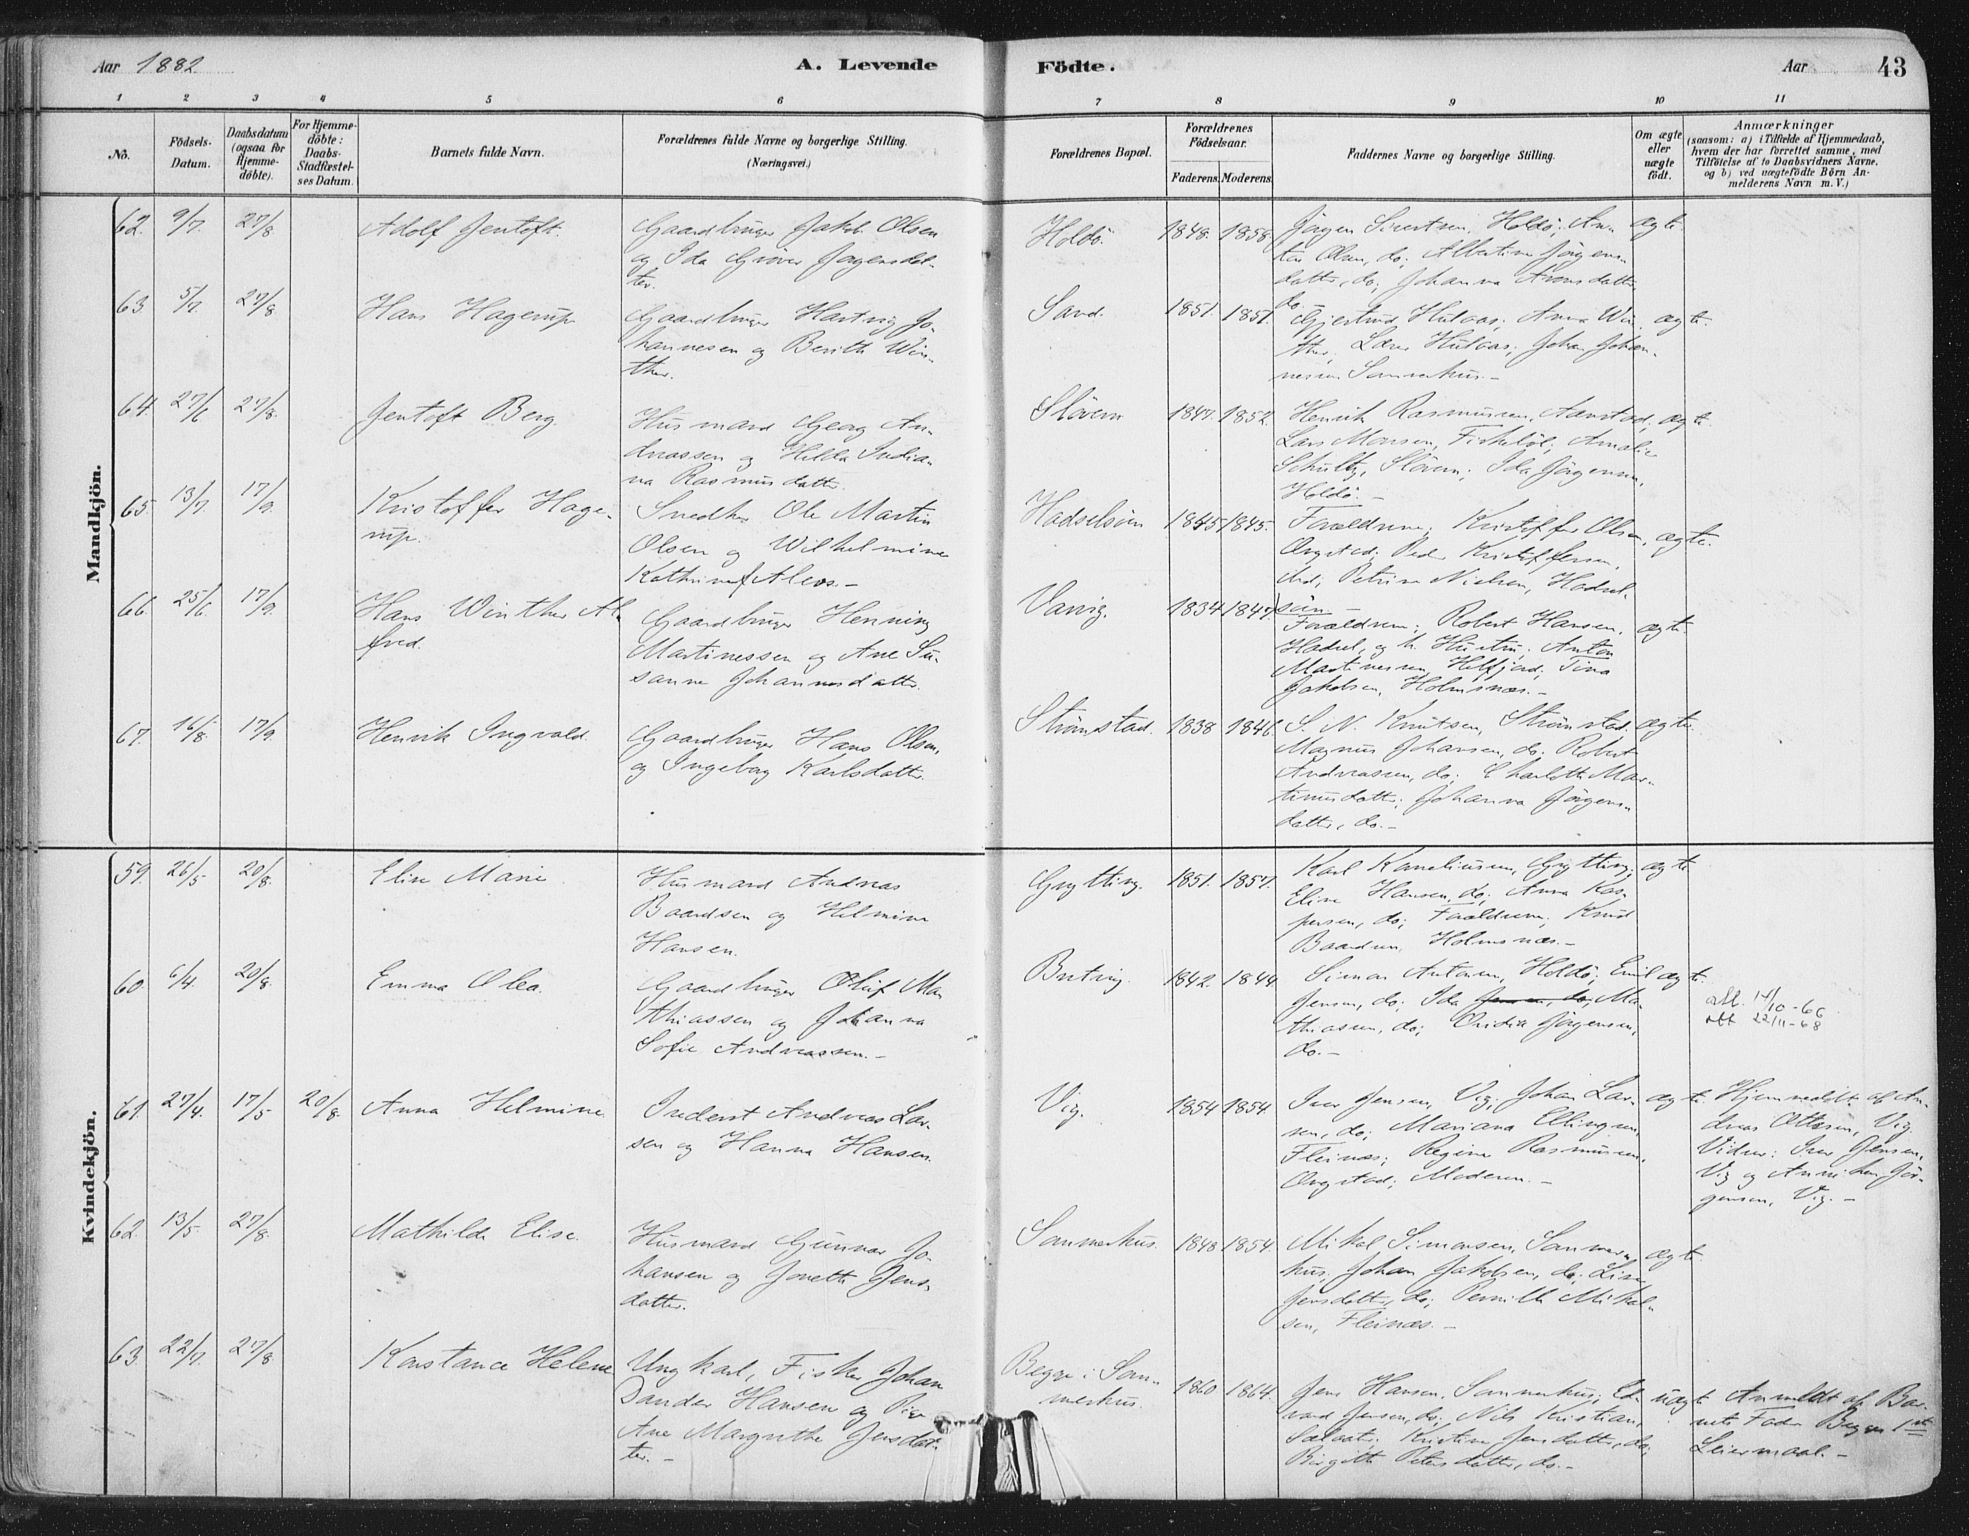 Aar 1882
A. Levende
Födte.
Aar
43
1 2 3 4 5 6 7 8 9 10 11
No.
Födsels-
Datum.
Daabsdatum
(ogsaa for
Hjemme-
döbte).
For Hjemme-
döbte:
Daabs-
Stadfæstel-
ses Datum.
Barnets fulde Navn.
Forældrenes fulde Navne og borgerlige Stilling.
(Næringsvei.)
Forældrenes Bopæl.
Forældrenes
Födselsaar.
Faderens. Moderens.
Faddernes Navne og borgerlige Stilling.
Om ægte
eller
uægte
födt.
Anmærkninger
(saasom: a) i Tilfælde af Hjemmedaab,
hvem der har forrettet samme, med
Tilföielse af to Daabsvidners Navne,
og b) ved uægtefödte Börn An-
melderens Navn m. V.)
Mandkjön.
62. 9/7. 27/8. Adolf Jentoft.
Gaardbruger Jakob Olsen
og Ida Gjöver Jörgensdat-
ter.
Holdö. 1848. 1858.
Jörgen Sivertsen, Holdö; An-
ton Olsen, do; Albertine Jörgens-
datter, do; Johanna Aronsdatter
do.
ægte.
63. 5/7. 27/8. Hans Hagerup
Gaardbruger Hartvig Jo-
hannesen og Berith Win-
ther.
Sand. 1851. 1851.
Gjertrud Hulaas; Anna Win-
ther, Hulaas; Johan Johan-
nesen Sannerhus.-
ægte.
64. 27/6 27/8. Jentoft Berg
Husmand Georg An-
dreassen og Hilda India-
na Rasmusdatter.
Slövern 1847. 1852.
Henrik Rasmussen, Aanstad;
Lars Monsen, Fiskeböl; Amalie
Schultz, Slövern; Ida Jörgensen,
Holdö.-
ægte.
65. 13/7. 17/9. Kristoffer Hage-
rup.
Snedker Ole Martin
Olsen og Wilhelmine
Kathrine Aleos.-
Hadselöen 1845 1845.
Forældrene; Kristoffer Olsen,
Ongstad; Peder Kristoffersen,
ibid, Petrine Nielsen, Hadsel-
öen -
ægte.
66. 25/6. 17/9. Hans Winther Al-
fred.
Gaardbruger Henning
Martinessen og Ane Su-
sanne Johannesdatter.
Varvig. 1834 1847.
Forældrene; Robert Hansen,
Hadsel, og h. Hustru; Anton
Martinessen, Helfjord; Tina
Jakobsen, Holmsnæs.-
ægte.
67. 16/8. 17/9. Henrik Ingvald.
Gaardbruger Hans Olsen,
og Ingeborg Karlsdatter.
Strönstad. 1838 1846.
S. N. Knutsen, Strönstad.
Magnus Johansen, do; Robert
Andreassen, do; Charlotte Mar-
tinusdatter; Johanna Jörgens-
datter, do.-
ægte.
Kvindekjön.
59. 26/5 20/8. Elise Marie
Husmand Andreas
Baardsen og Helmine
Hansen.
Grytting. 1851. 1857.
Karl Korneliussen, Grytting;
Elise Hansen, do; Anna Kas-
persen, do; Forældrene; Knud
Baardsen, Holmsnæs.-
ægte.
60. 6/4. 20/8. Emma Olea.
Gaardbruger Oluf Ma-
thiassen og Johanna
Sofie Andreassen.-
Butvig. 1842. 1844.
Simon Antonsen, Holdö; Emil
Jensen, do; Ida Jensen, do; Ma-
thiassen, do; Ovidia Jörgensen,
do.-
ægte.
att. 14/10-66
att 22/11-68
61. 27/4. 17/5 20/8. Anna Helmine
Inderst Andreas Lar-
sen og Hanna Hansen.
Vig. 1854 1854
Iver Jensen, Vig; Johan Lar-
sen, do; Mariana Ellingsen,
Fleinæs; Regine Rasmussen,
Ongstad; Moderen.-
ægte.
Hjemmedöbt af An-
dreas Ottesen, Vig.
Vidner: Iver Jensen,
Vig og Anne Jör-
gensen, Vig.-
62. 13/5. 27/8. Mathilde Elise.
Husmand Gunnar Jo-
hansen og Jonette Jens-
datter.
Sannerhus. 1848 1854.
Mikal Simonsen, Sanner-
hus, Johan Jakobsen, do; Lina
Jensdatter, do; Pernille Mikal-
sen, Fleinæs.-
ægte.
63. 22/7. 27/8. Konstance Helene
Ungkarl, Fisker Johan
Sander Hansen og Pige
Ane Margrethe Jensdat-
ter.-
Begge i San-
nerhus. 1860 1864.
Jens Hansen, Sannerhus; Ed-
vard Jensen, do; Nils Kristian,
Kristine Jensdatter, do;
Birgitte Petersdatter, do.-
uægte
Anmeldt af Bar-
nets Fader Begges 1ste
Leiermaal.-